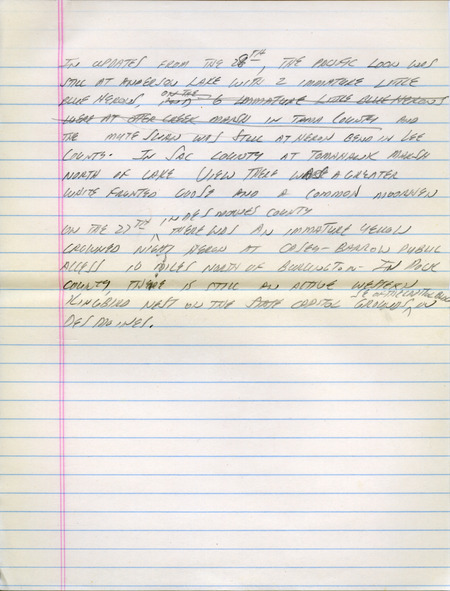 IN UPDATES FROM THE 28TH, THE PACIFIC LOON WAS
STILL AT ANDERSON LAKE WITH 2 IMMATURE LITTLE
BLUE HERONS, ON THE 6 IMMATURE LITTLE BLUE HERONS
WERE AT OTTER CREEK MARSH IN TAMA COUNTY AND
THE MUTE SWAN WAS STILL AT HERON BEND IN LEE
COUNTY. IN SAC COUNTY AT TOMAHAWK MARSH
NORTH OF LAKE VIEW THERE WAS A GREATER
WHITE FRONTED GOOSE AND A COMMON MOORHEN
ON THE 27TH, IN DES MOINES COUNTY THERE WAS AN IMMATURE YELLOW
CROWNED NIGHT HERON AT CASEY-BARROW PUBLIC
ACCESS 10 MILES NORTH OF BURLINGTON. IN POLK
COUNTY, THERE IS STILL AN ACTIVE WESTERN
KINGBIRD NEST ON THE STATE CAPITOL GROUNDS, IN
DES MOINES.